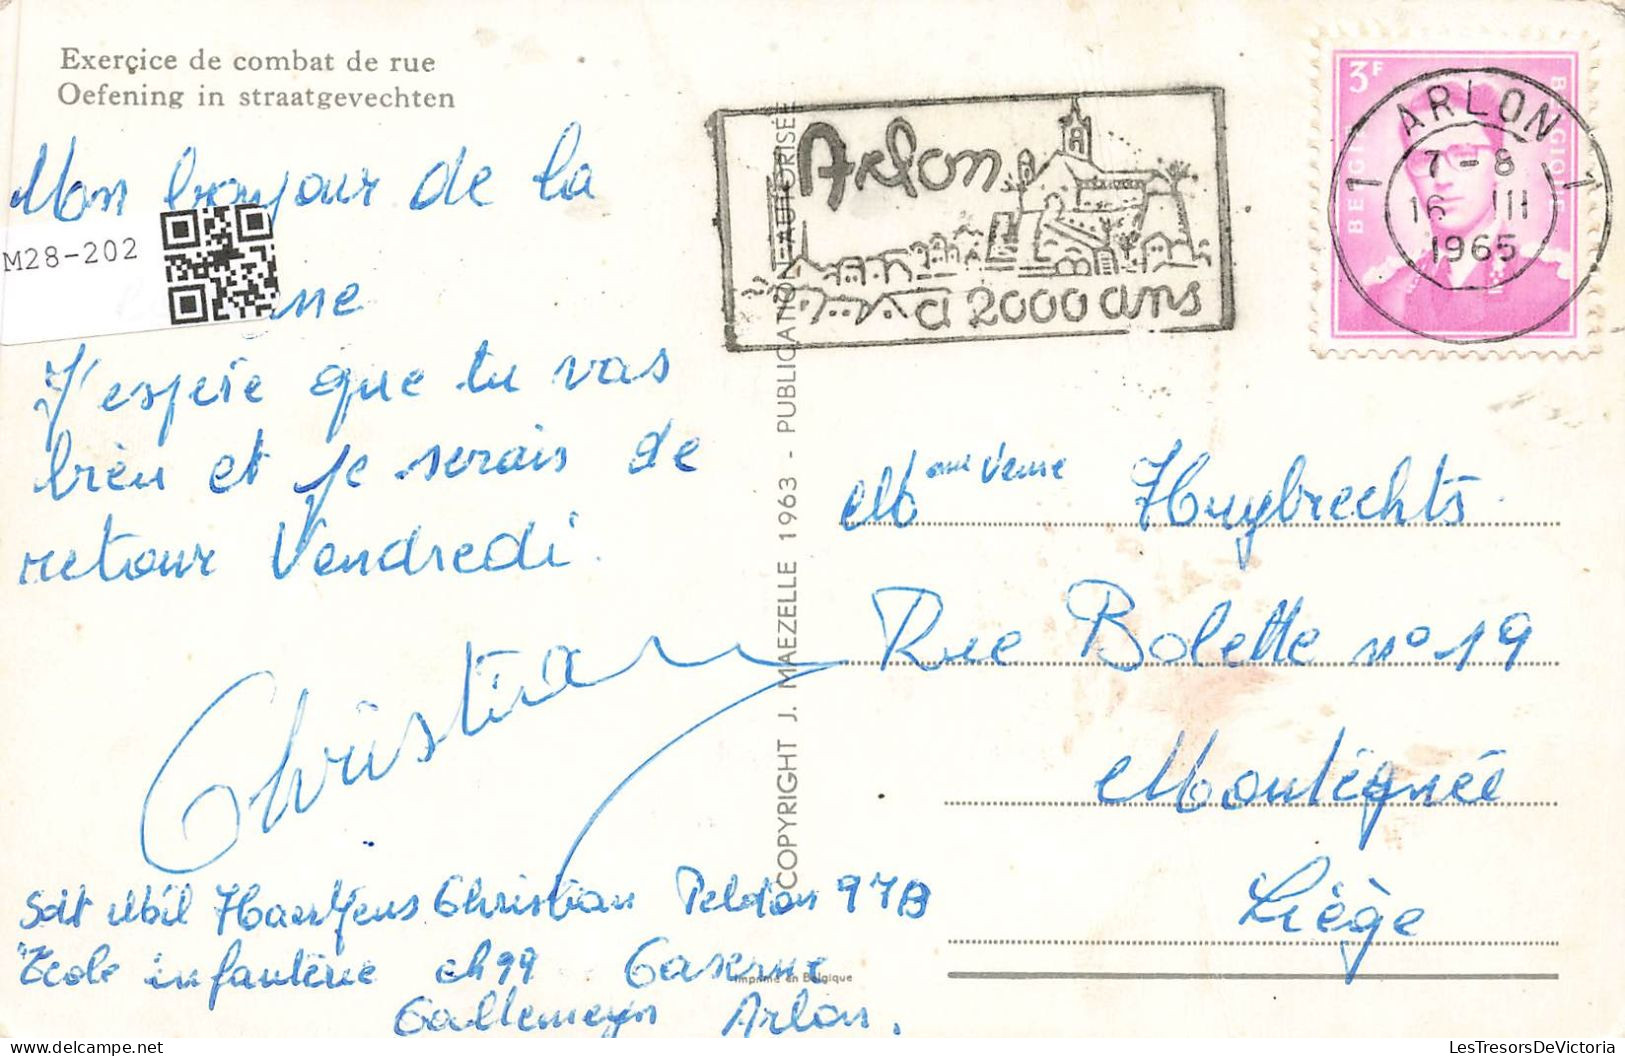 Exerçice de combat de rue
Oefening in straatgevechten
Mon bonjour de la
M28-202
J'espère que tu vas
bien et je serais de
retour Vendredi.
Christian
Sdt Mil Haertjens Christian Peloton 97B
Ecole infanterie ch99 Caserne
Callemeyn Arlon.
COPYRIGHT J. MAEZELLE 1963 - PUBLICATION AUTORISÉE
Imprimé en Belgique
Arlon
a 2000 ans
3F
BELGIË
BELGIQUE
1 ARLON 1
7-8
16 III
1965
Mme Veuve Huybrechts.
Rue Bolette n° 19
Montégnée
Liège
LesTresorsDeVictoria